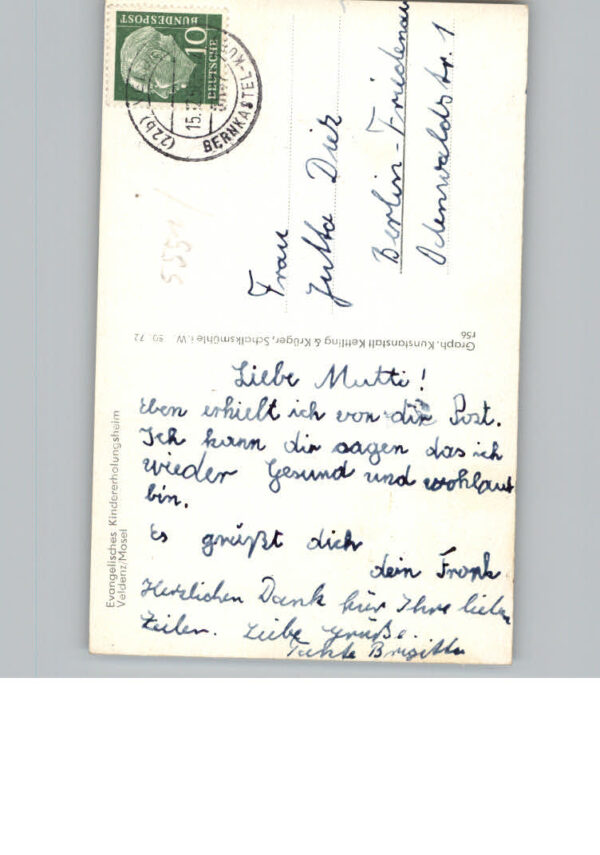 DEUTSCHE
BUNDESPOST
10
(22b)
15.
BERNKASTEL-KU
Frau
Jutta Diez
Berlin-Friedenau
Odenwaldstr. 1
5551/
Graph. Kunstanstalt Kettling & Krüger, Schalksmühle i.W. 59 72
r56
Evangelisches Kindererholungsheim
Veldenz/Mosel
Liebe Mutti!
Eben erhielt ich von dir Post.
Ich kann dir sagen das ich
wieder Gesund und wohlauf
bin.
Es grüßt dich
dein Frank
Herzlichen Dank für Ihre lieben
Zeilen. Liebe Grüße.
Tante Brigitte